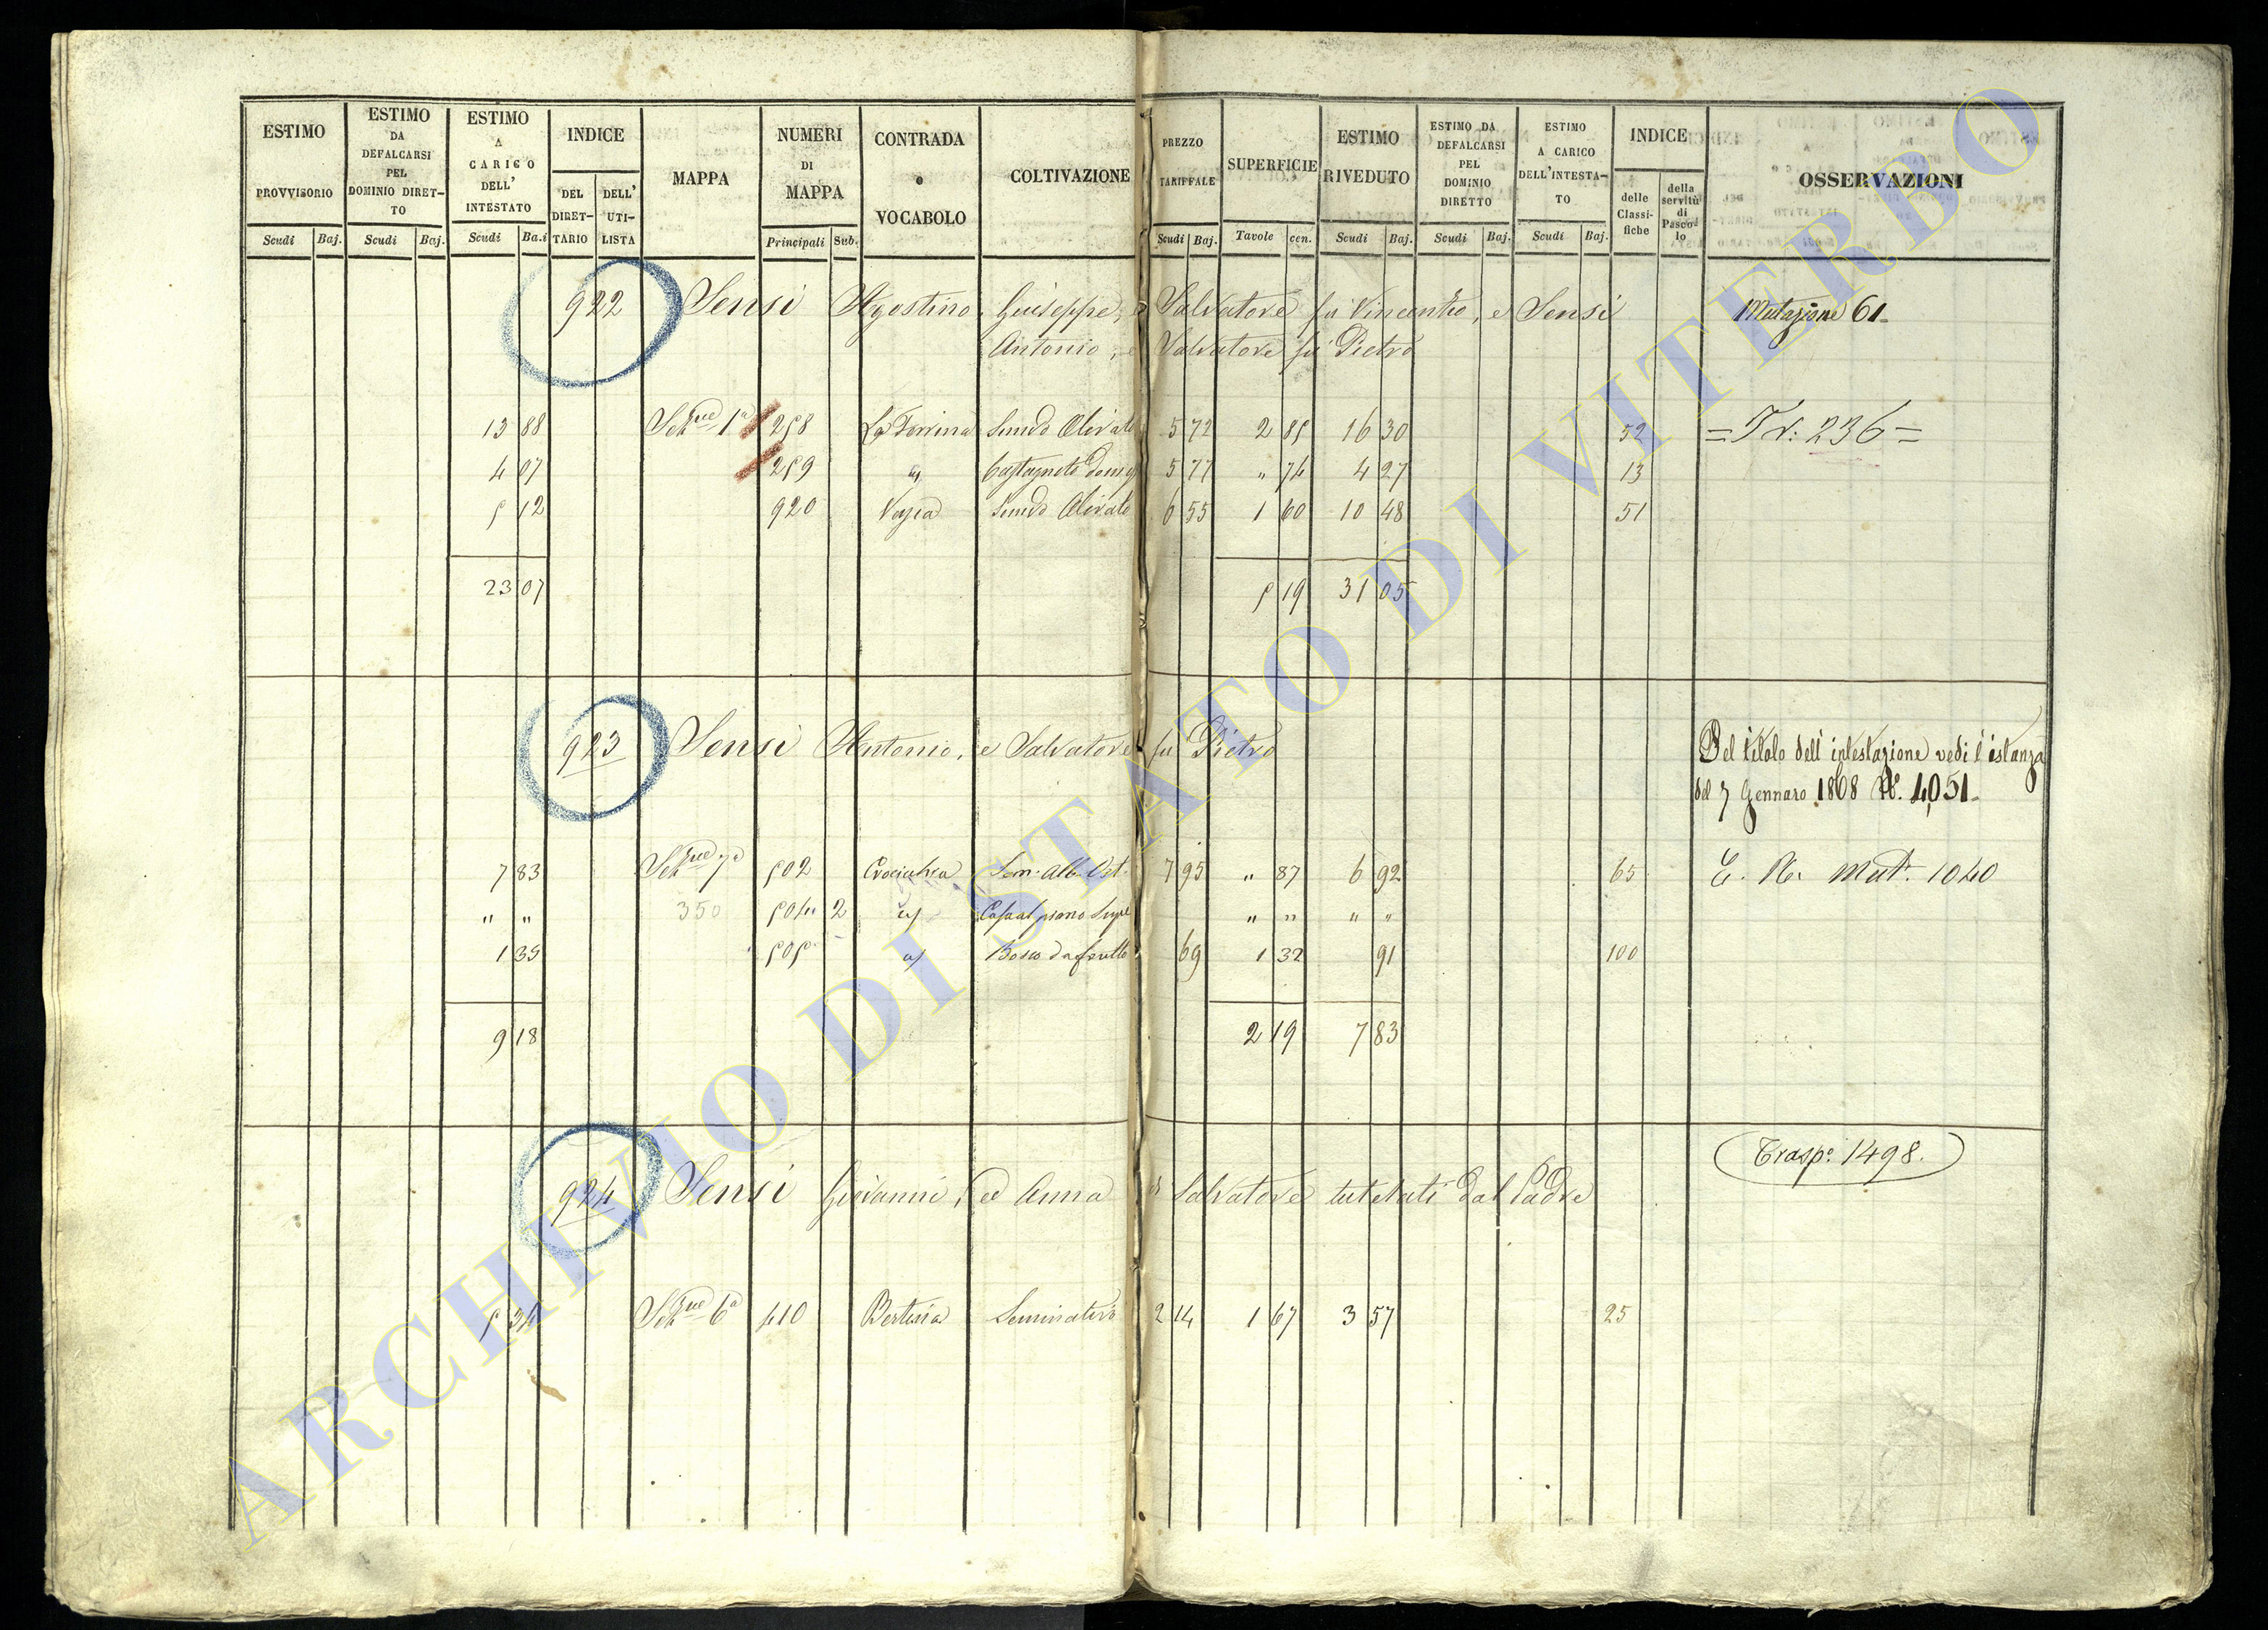 ESTIMO PROVVISORIO | ESTIMO DA DEFALCARSI PEL DOMINIO DIRETTO | ESTIMO A CARICO DELL' INTESTATO | INDICE DEL DIRETTARIO | DELL' UTILISTA | MAPPA | NUMERI DI MAPPA | CONTRADA o VOCABOLO | COLTIVAZIONE | PREZZO TARIFFALE | SUPERFICIE | ESTIMO RIVEDUTO | ESTIMO DA DEFALCARSI PEL DOMINIO DIRETTO | ESTIMO A CARICO DELL'INTESTATO | INDICE delle Classifiche | della servitù di Pascolo | OSSERVAZIONI
Scudi Baj. Scudi Baj. Scudi Ba.i Principali Sub. Scudi Baj. Tavole cen. Scudi Baj. Scudi Baj. Scudi Baj.
922 Sensi Agostino, Giuseppe, e Salvatore fu Vincenzo, e Sensi Mutazione 61
Antonio, e Salvatore fu Pietro
13 88 Sez 1a 258 La Torrina Semvo Olivato 5 72 2 85 16 30 52 = Tr: 236 =
4 07 259 Castagneto Dom 5 77 " 74 4 27 13
5 12 920 Semvo Olivato 6 55 1 60 10 48 51
23 07 5 19 31 05
923 Sensi Antonio, e Salvatore fu Pietro Del titolo dell'intestazione vedi l'istanza
del 7 Gennaro 1868 N. 1,051
7 83 502 Sem. Alb. Vit. 7 95 " 87 6 92 65 Mut. 1040
" " 350 504 2 " " " "
1 35 505 Bosco da frutto 69 1 32 91 100
9 18 2 19 7 83
Trasp. 1498.
924 Sensi Giovanni, ed Anna di Salvatore tutelati dal Padre
5 34 6a 410 Seminativo 2 14 1 67 3 57 25
ARCHIVIO DI STATO DI VITERBO